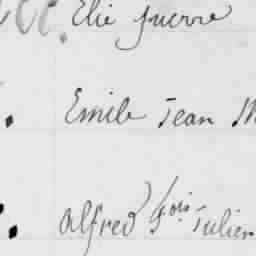 Elie Pierre
Emile Jean M
Alfred fois Julien